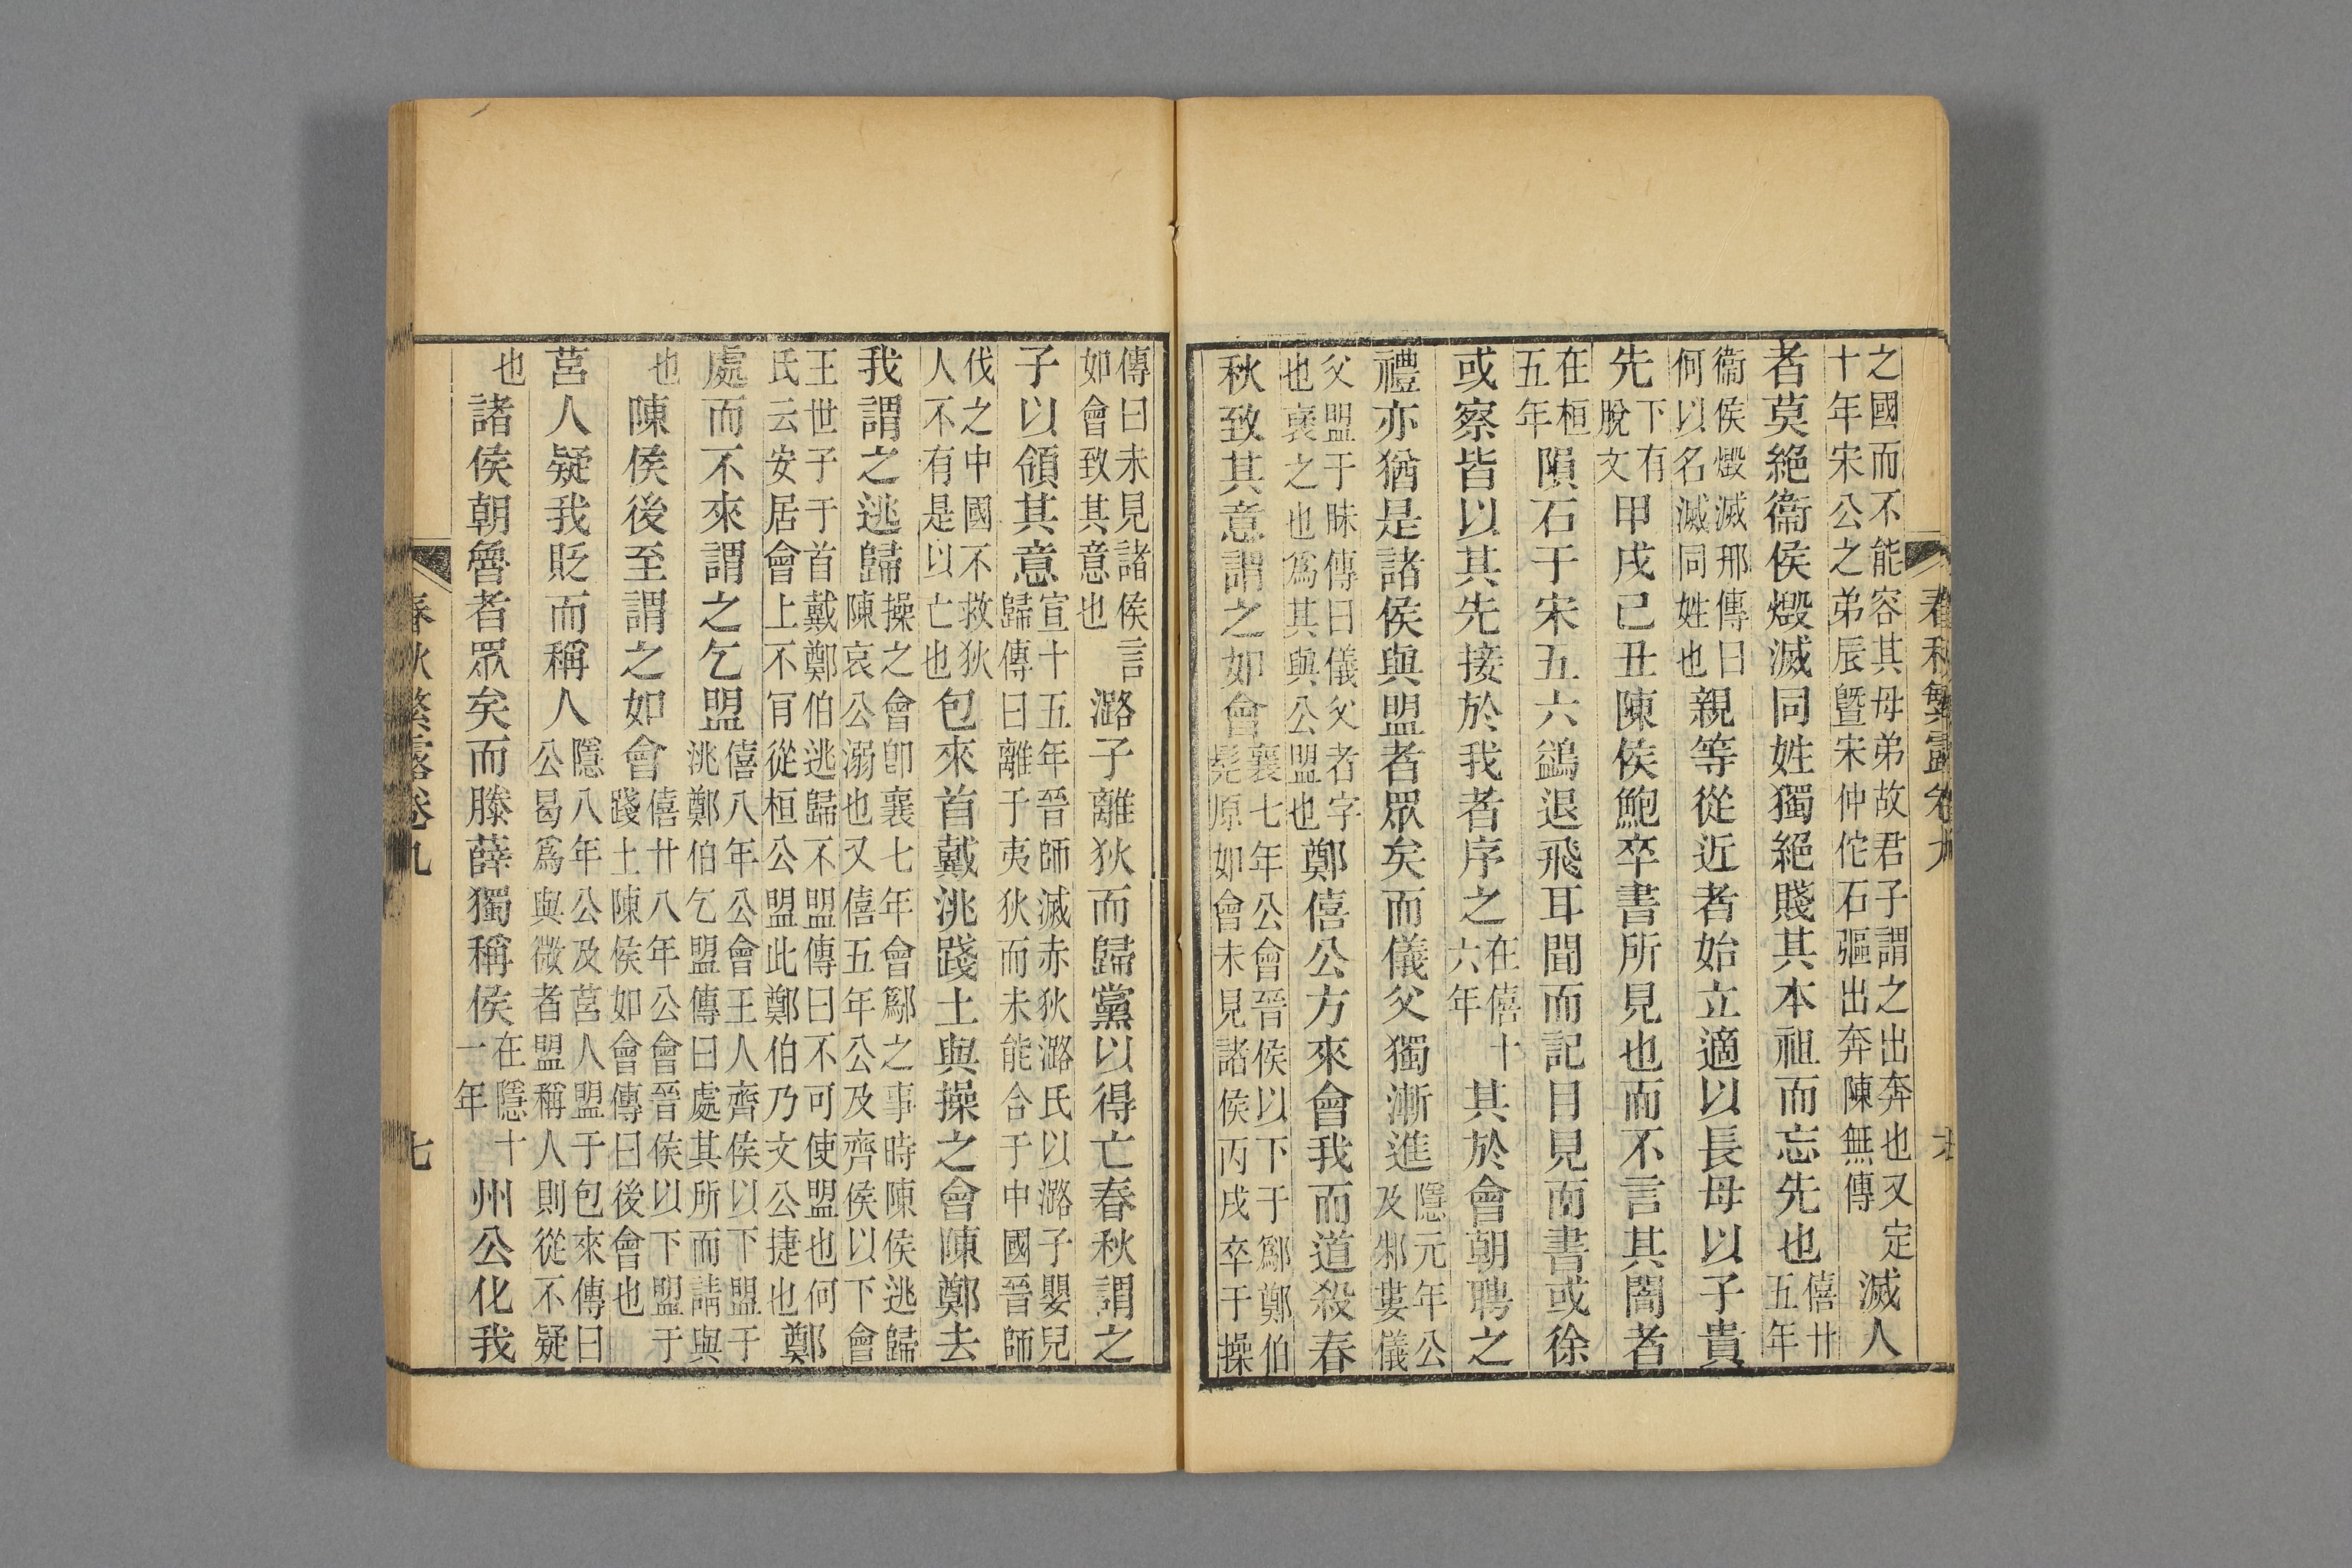 春秋繁露卷九
之國而不能容其母弟故君子謂之出奔也又定
十年宋公之弟辰暨宋仲佗石彄出奔陳無傳
滅人
者莫絕衞侯燬滅同姓獨絕賤其本祖而忘先也
僖廿
五年
衞侯燬滅邢傳曰
何以名滅同姓也
親等從近者始立適以長母以子貴
先
下有
脫文
甲戌己丑陳侯鮑卒書所見也而不言其闇者
在桓
五年
隕石于宋五六鷁退飛耳聞而記目見而書或徐
或察皆以其先接於我者序之
在僖十
六年
其於會朝聘之
禮亦猶是諸侯與盟者眾矣而儀父獨漸進
隱元年公
及邾婁儀
父盟于昧傳曰儀父者字
也襃之也爲其與公盟也
鄭僖公方來會我而道殺春
秋致其意謂之如會
襄七年公會晉侯以下于鄬鄭伯
髡原如會未見諸侯丙戌卒于操
傳曰未見諸侯言
如會致其意也
潞子離狄而歸黨以得亡春秋謂之
子以領其意
宣十五年晉師滅赤狄潞氏以潞子嬰兒
歸傳曰離于夷狄而未能合于中國晉師
伐之中國不救狄
人不有是以亡也
包來首戴洮踐土與操之會陳鄭去
我謂之逃歸
操之會卽襄七年會鄬之事時陳侯逃歸
陳哀公溺也又僖五年公及齊侯以下會
王世子于首戴鄭伯逃歸不盟傳曰不可使盟也何
氏云安居會上不肎從桓公盟此鄭伯乃文公捷也
鄭
處而不來謂之乞盟
僖八年公會王人齊侯以下盟于
洮鄭伯乞盟傳曰處其所而請與
也
陳侯後至謂之如會
僖廿八年公會晉侯以下盟于
踐土陳侯如會傳曰後會也
莒人疑我貶而稱人
隱八年公及莒人盟于包來傳曰
公曷爲與微者盟稱人則從不疑
也
諸侯朝魯者眾矣而滕薛獨稱侯
在隱十
一年
州公化我
春秋繁露卷九
七